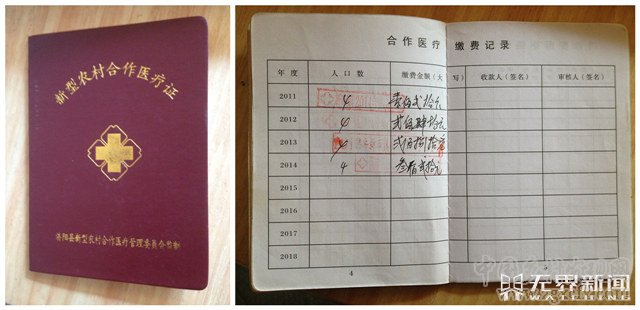 新型农村合作医疗证
阳县新型农村合作医疗管理委员会监制
合作医疗 缴费记录
年度 人口数 缴费金额(大写) 收款人(签名) 审核人(签名)
2011 4 壹佰贰拾元
2012 4 贰佰肆拾元
2013 4 贰佰捌拾元
2014 4 叁佰贰拾元
2015
2016
2017
2018
4
无界新闻
WATCHING